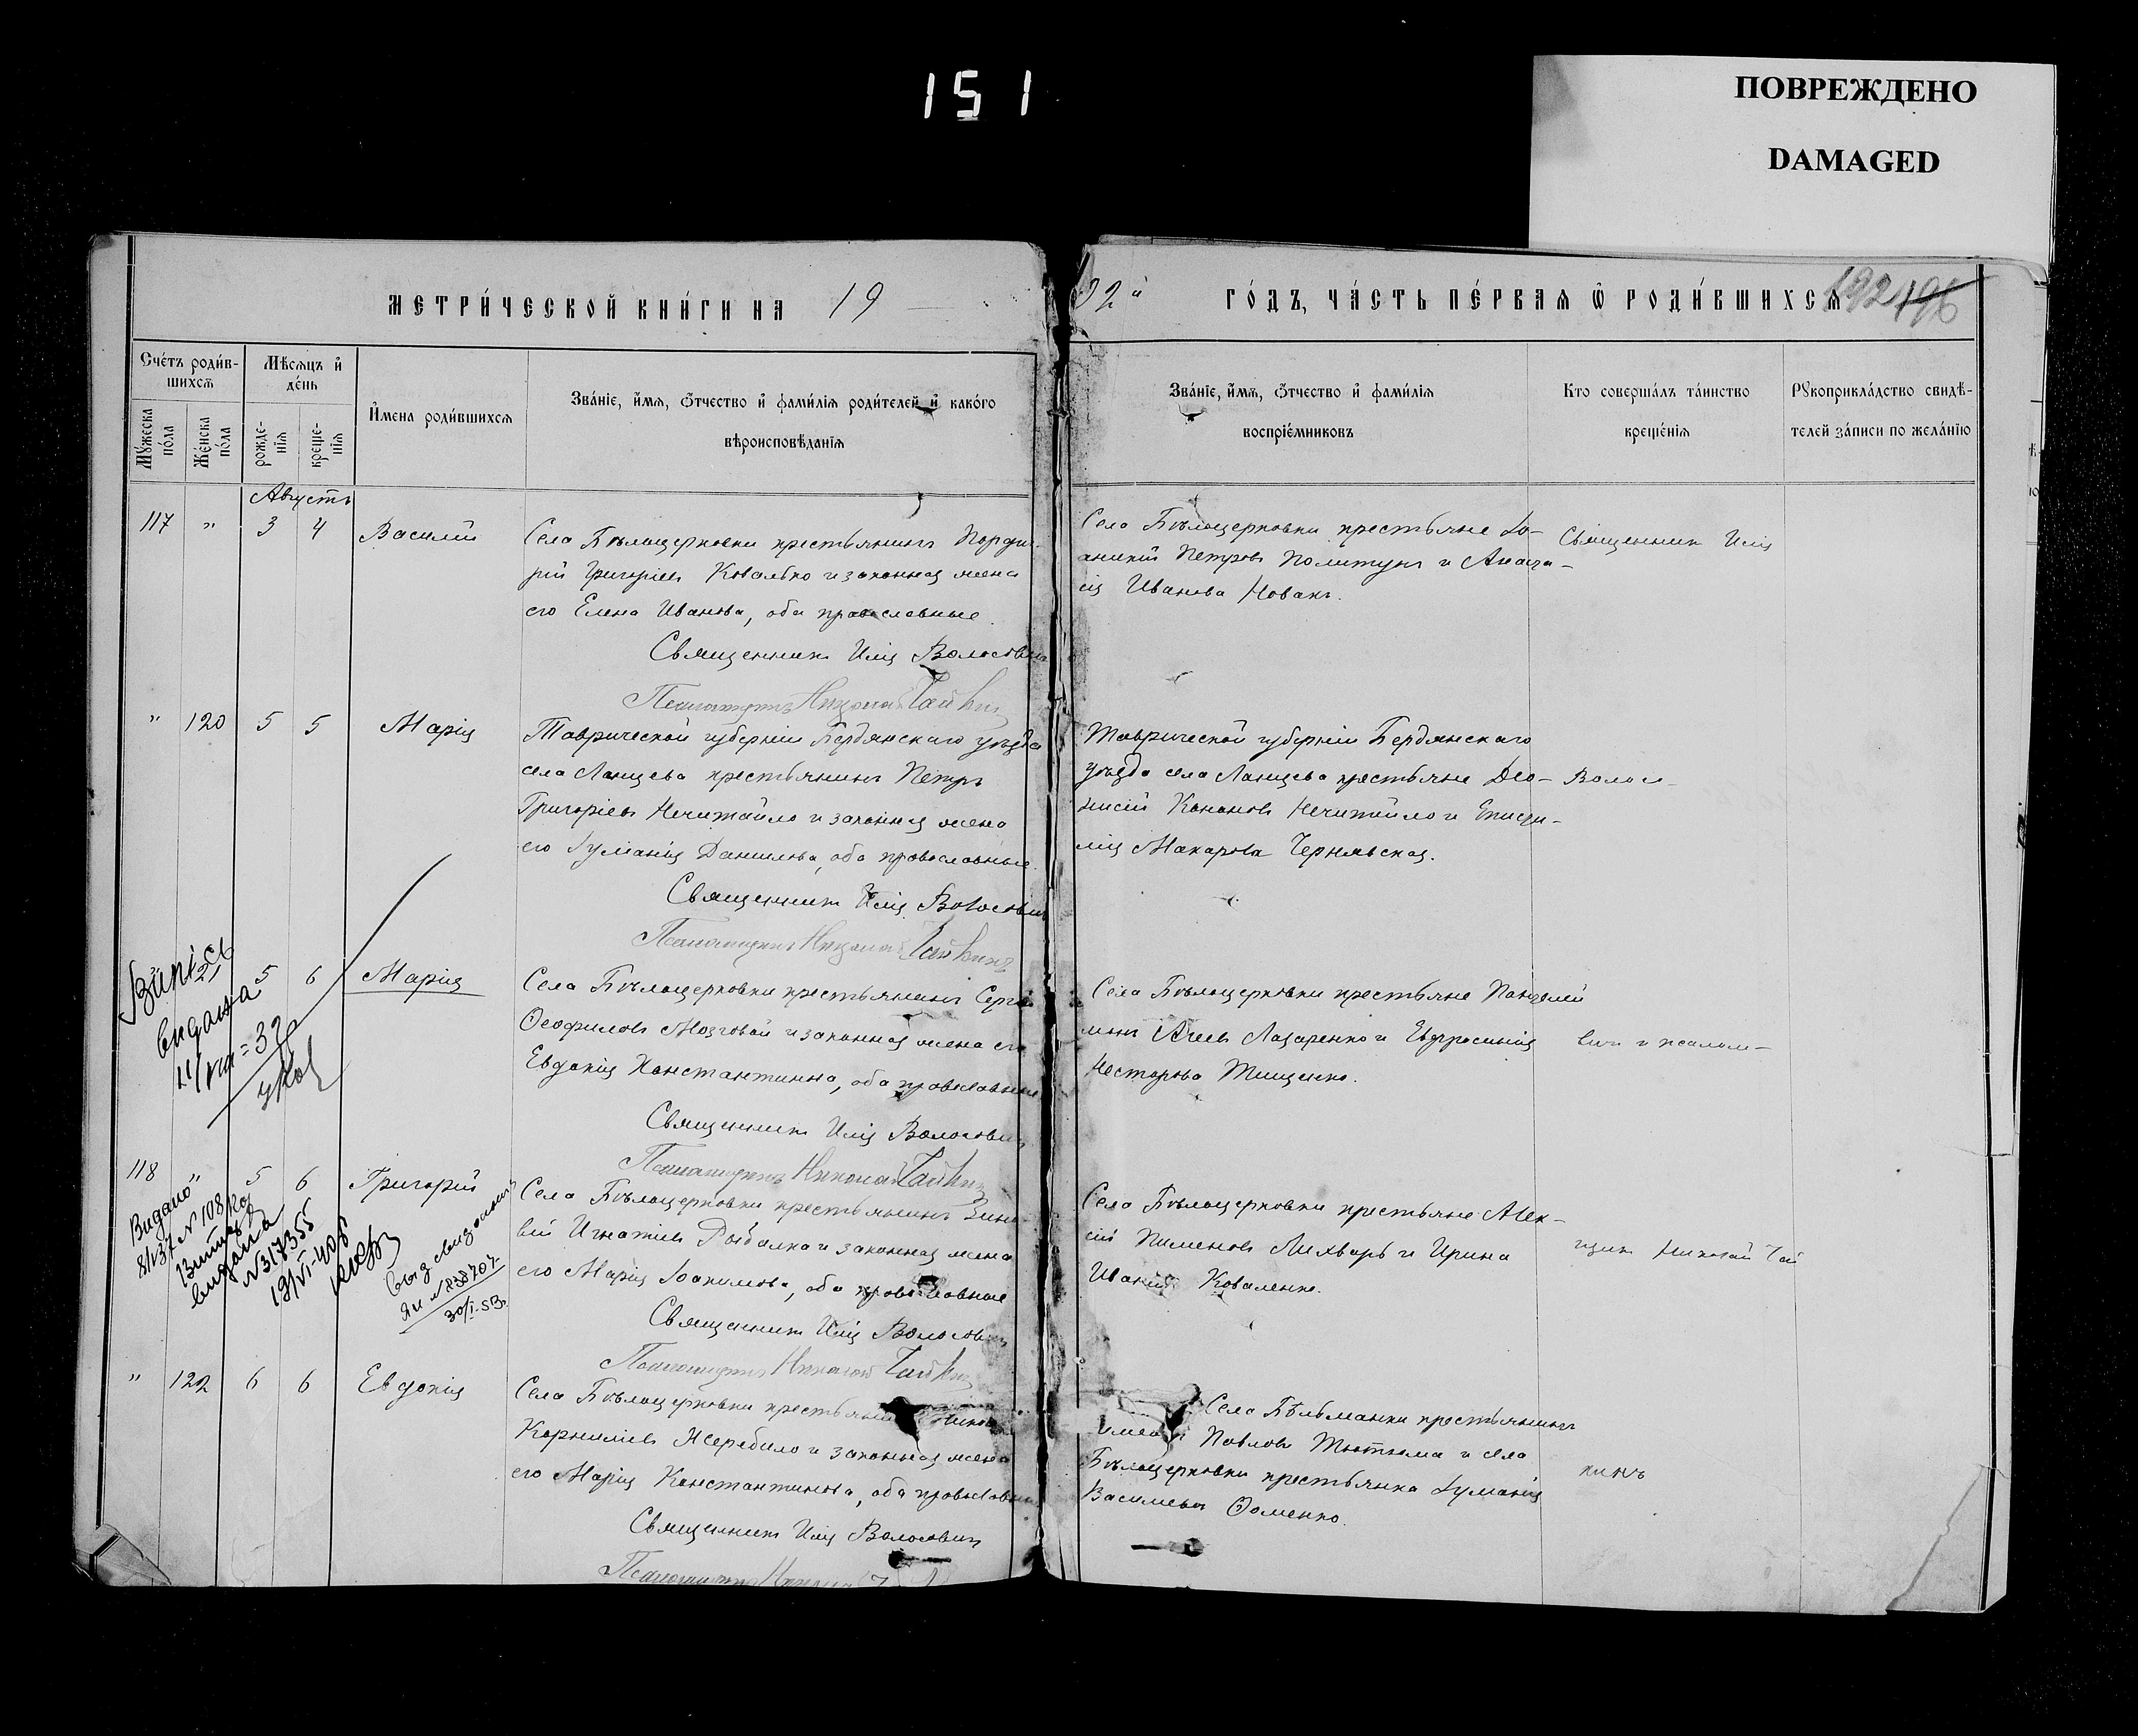 151
ПОВРЕЖДЕНО
DAMAGED
МЕТРИ́ЧЕСКОЙ КНИ́ГИ НА 19
02й ГО́ДЪ, ЧА́СТЬ ПЕ́РВАЯ Ѽ РОДИ́ВШИХСѦ 192 196
Счéтъ роди́в-
шихсѧ
Мꙋ́жеска пóла
Жéнска пóла
Мѣ́сѧцъ и҆ дéнь
рождé-нїѧ
крещé-нїѧ
И҆мена роди́вшихсѧ
Звáнїе, и҆́мѧ, ѻ҆́тчество и҆ фами́лїѧ роди́телей и҆ какóго
вѣроисповѣ́данїѧ
Звáнїе, и҆́мѧ, ѻ҆́тчество и҆ фами́лїѧ
воспрїе́мниковъ
Кто совершáлъ тáинство
крещéнїѧ
Рꙋкоприклáдство свидѣ́-
телей зáписи по желáнїю
Августъ
117 " 3 4 Василий
Села Бѣлоцерковки крестьянинъ Порфи-
рій Григоріевъ Ковалько и законная жена
его Елена Иванова, оба православные.
Священникъ Илія Волосовичъ
Псаломщикъ Николай Чайкинъ
Села Бѣлоцерковки крестьяне Іо-
аникій Петровъ Политунъ и Анаста-
сія Иванова Новакъ.
Священникъ Илія
" 120 5 5 Марія
Таврической губерніи Бердянскаго уѣзда
села Ланцева крестьянинъ Петръ
Григоріевъ Нечитайло и законная жена
его Іуліанія Данилова, оба православные.
Священникъ Илія Волосовичъ
Псаломщикъ Николай Чайкинъ
Таврической губерніи Бердянскаго
уѣзда села Ланцева крестьяне Део-
нисій Кононовъ Нечитайло и Еписти-
мія Макарова Чернявская.
Волосо-
121 5 6 Марія
Села Бѣлоцерковки крестьянинъ Сергій
Ѳеофиловъ Мозговой и законная жена его
Евдокія Константинова, оба православные
Священникъ Илія Волосовичъ
Псаломщикъ Николай Чайкинъ
Села Бѣлоцерковки крестьяне Пантелей
монъ Лазаренко и Евфросинія
Несторова Тищенко.
вичъ и псалом-
видана
118 " 5 6 Григорій
Видано
8/IV 37 № 108
видана
№ 317355
19/VI-40г
30/I-53г.
Села Бѣлоцерковки крестьянинъ Зино-
вій Игнатіевъ Рыбалка и законная жена
его Марія Іоакимова, оба православные
Священникъ Илія Волосовичъ
Псаломщикъ Николай Чайкинъ
Села Бѣлоцерковки крестьяне Алек-
сій Пименовъ Лихваръ и Ирина
Коваленко.
щикъ Николай Чай
" 122 6 6 Евдокія
Села Бѣлоцерковки крестьянинъ
Корниліевъ Жеребило и законная жена
его Марія Константинова, оба православные
Священникъ Илія Волосовичъ
Псаломщикъ
Села Бѣльманки крестьянинъ
Павловъ Тютюма и села
Бѣлоцерковки крестьянка Іуліанія
Василіева Ѳоменко.
кинъ